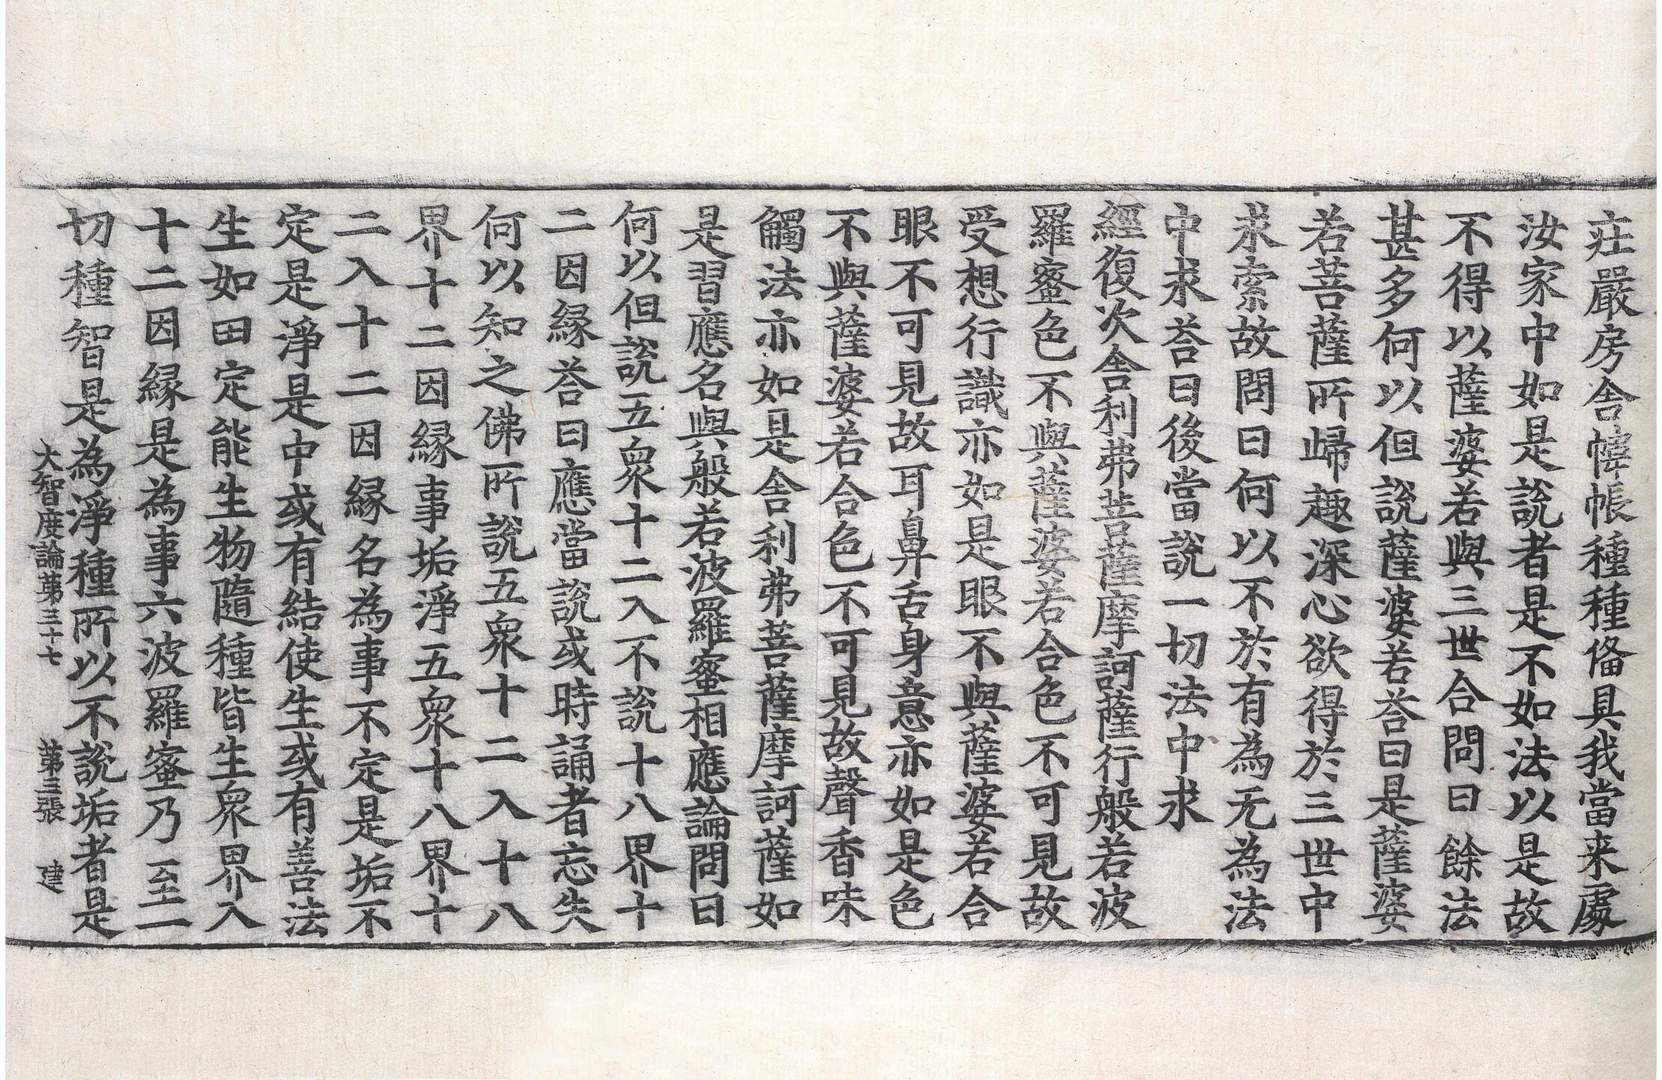 莊嚴房舍幃帳種種俻具我當来處
汝家中如是說者是不如法以是故
不得以薩婆若與三世合問曰餘法
甚多何以但說薩婆若荅曰是薩婆
若菩薩所歸趣深心欲得於三世中
求索故問曰何以不於有為无為法
中求荅曰後當說一切法中求
經復次舍利弗菩薩摩訶薩行般若波
羅蜜色不與薩婆若合色不可見故
受想行識亦如是眼不與薩婆若合
眼不可見故耳鼻舌身意亦如是色
不與薩婆若合色不可見故聲香味
觸法亦如是舍利弗菩薩摩訶薩如
是習應名與般若波羅蜜相應論問曰
何以但說五眾十二入不說十八界十
二因緣荅曰應當說或時誦者忘失
何以知之佛所說五眾十二入十八
界十二因緣事垢淨五眾十八界十
二入十二因緣名為事不定是垢不
定是淨是中或有結使生或有善法
生如田定能生物隨種皆生眾界入
十二因緣是為事六波羅蜜乃至一
切種智是為淨種所以不說垢者是
大智度論第三十七　第三張　建